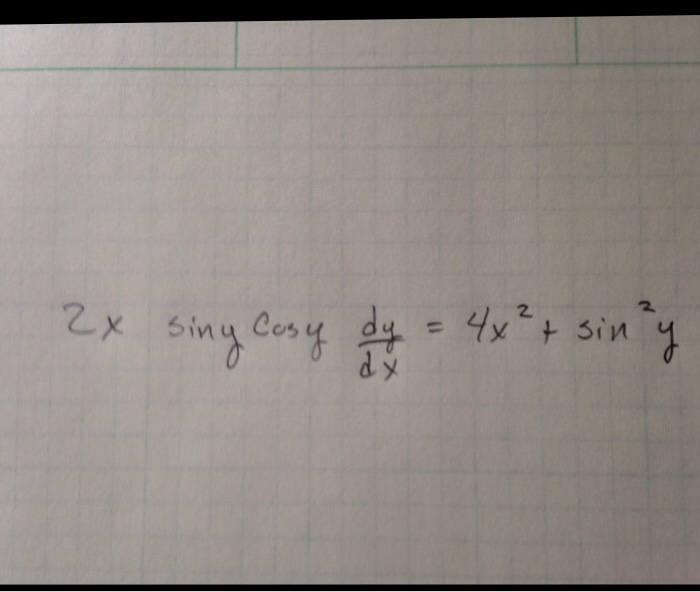 2x sin y cos y dy/dx = 4x² + sin² y